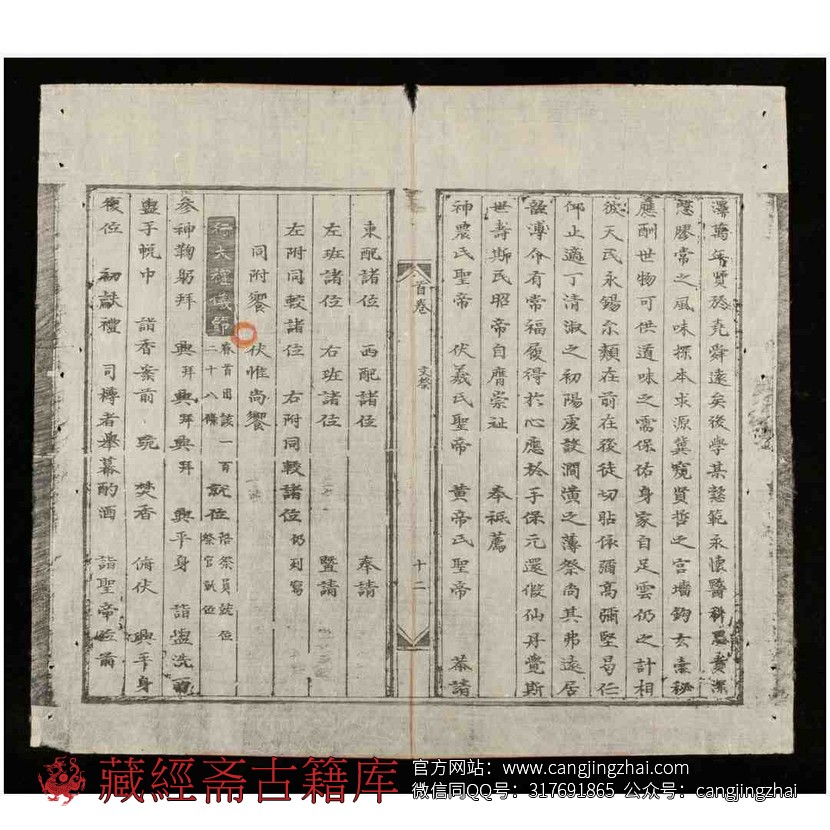 澤萬年賢於堯舜遠矣後學某慜範永懷醫科思黃深
應酬世物可供道味之需保佑身家自足雲仍之計相
彼天民永錫尔類在前在後徒切貼依彌高彌堅曷仁
仰止適丁清淑之初陽虔設澗潢之薄祭尚其弗遠居
歆溥介有常福履得於心應於手保元還假仙丹覺斯
世壽斯民昭帝自膺崇祉 奉祗薦
神農氏聖帝 伏羲氏聖帝 黃帝氏聖帝 恭請
首卷 文祭 十二
東配諸位 西配諸位 奉請
左班諸位 右班諸位 暨請
左附同較諸位 右附同較諸位 仍列寫
同附饗 伏惟尚饗
行大禮儀節 春首用該一百二十八條 就位 陪祭員就位 祭官就位
參神鞠躬拜 興拜興拜興拜 興平身 詣盥洗所
盥手帨巾 詣香案前 跪 焚香 俯伏 興平身
復位 初獻禮 司樽者舉幕酌酒 詣聖帝位前
藏經斋古籍库
官方网站：www.cangjingzhai.com
微信同QQ号：317691865 公众号：cangjingzhai